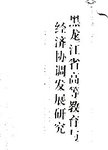 黑龙江省高等教育与
经济协调发展研究